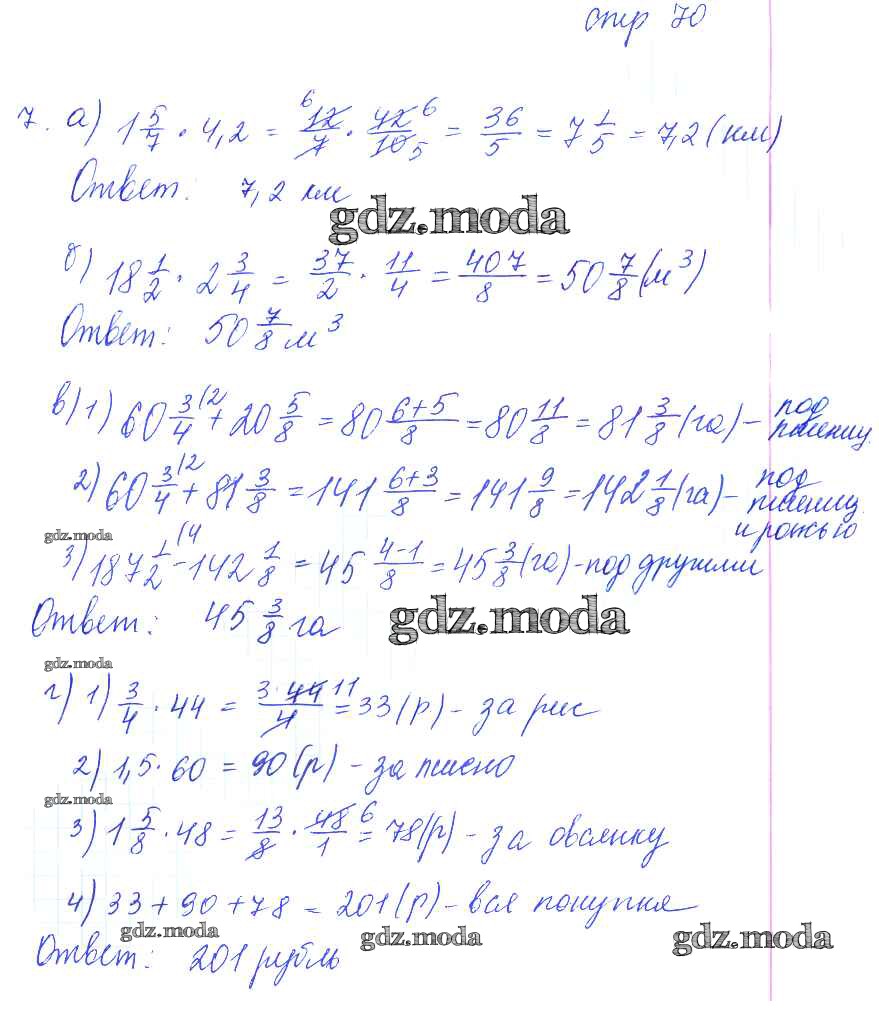 стр 70
7. а) 1 5/7 · 4,2 = 12/7 · 42/10 = 36/5 = 7 1/5 = 7,2 (км)
Ответ: 7,2 км
gdz.moda
б) 18 1/2 · 2 3/4 = 37/2 · 11/4 = 407/8 = 50 7/8 (м³)
Ответ: 50 7/8 м³
в) 1) 60 3/4 (2 + 20 5/8 = 80 6+5/8 = 80 11/8 = 81 3/8 (га) – под пшениц.
2) 60 3/4 (2 + 81 3/8 = 141 6+3/8 = 141 9/8 = 142 1/8 (га) – под пшениц. и рожью
gdz.moda
3) 187 1/2 (4 - 142 1/8 = 45 4-1/8 = 45 3/8 (га) - под другими
Ответ: 45 3/8 га
gdz.moda
gdz.moda
г) 1) 3/4 · 44 = 3·44 11/4 = 33 (р) – за рис
2) 1,5 · 60 = 90 (р) – за пшено
gdz.moda
3) 1 5/8 · 48 = 13/8 · 48 6/1 = 78 (р) – за овсянку
4) 33 + 90 + 78 = 201 (р) – вся покупка
gdz.moda gdz.moda gdz.moda
Ответ: 201 рубль